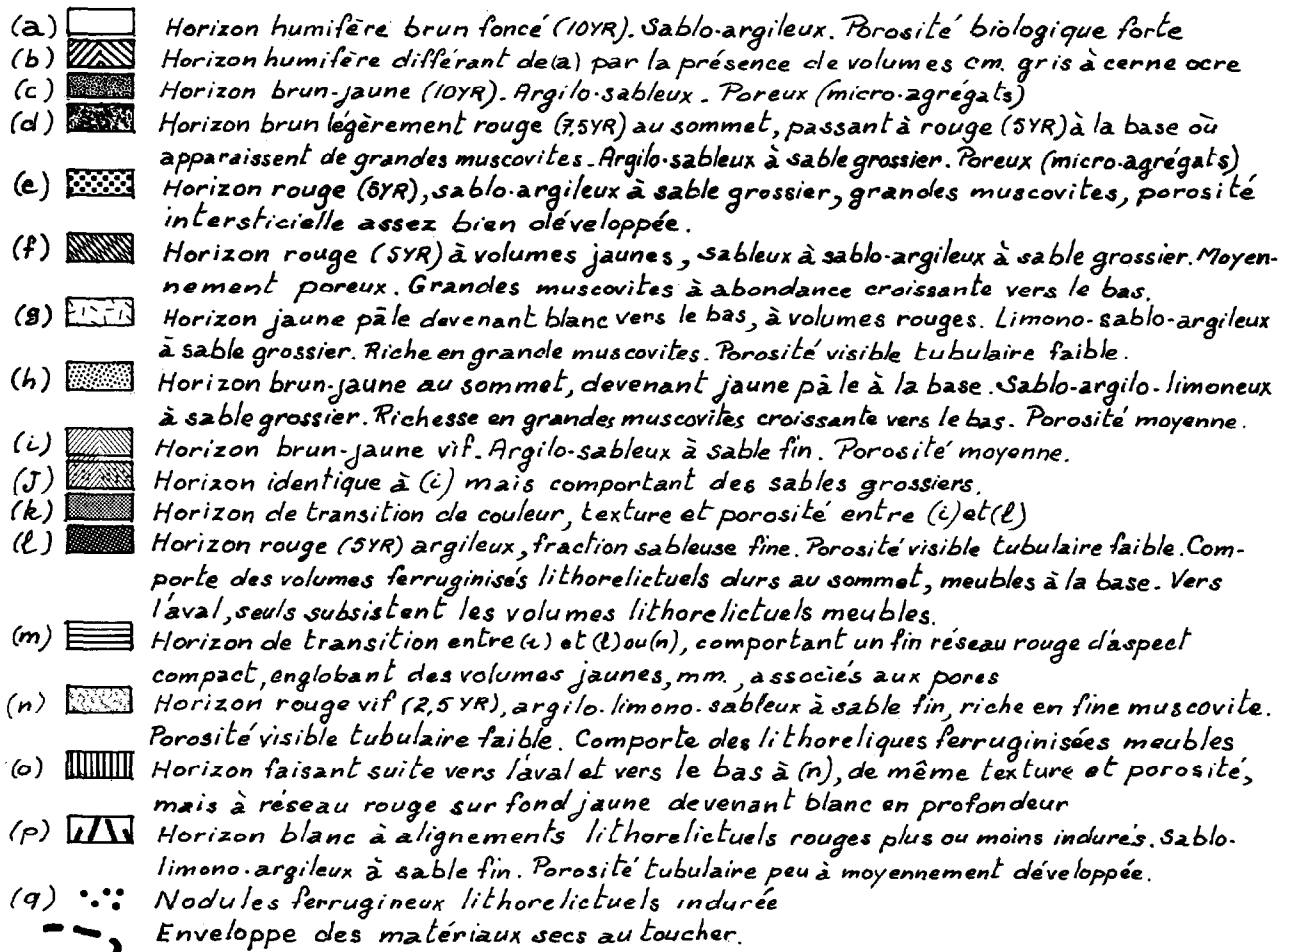 (a) Horizon humifère brun foncé (10YR). Sablo-argileux. Porosité biologique forte
(b) Horizon humifère différant de (a) par la présence de volumes cm. gris à cerne ocre
(c) Horizon brun-jaune (10YR). Argilo-sableux. Poreux (micro-agrégats)
(d) Horizon brun légèrement rouge (7,5YR) au sommet, passant à rouge (5YR) à la base où
apparaissent de grandes muscovites. Argilo-sableux à sable grossier. Poreux (micro-agrégats)
(e) Horizon rouge (5YR), sablo-argileux à sable grossier, grandes muscovites, porosité
intersticielle assez bien développée.
(f) Horizon rouge (5YR) à volumes jaunes, sableux à sablo-argileux à sable grossier. Moyen-
nement poreux. Grandes muscovites à abondance croissante vers le bas.
(g) Horizon jaune pâle devenant blanc vers le bas, à volumes rouges. Limono-sablo-argileux
à sable grossier. Riche en grande muscovites. Porosité visible tubulaire faible.
(h) Horizon brun-jaune au sommet, devenant jaune pâle à la base. Sablo-argilo-limoneux
à sable grossier. Richesse en grandes muscovites croissante vers le bas. Porosité moyenne.
(i) Horizon brun-jaune vif. Argilo-sableux à sable fin. Porosité moyenne.
(J) Horizon identique à (i) mais comportant des sables grossiers.
(k) Horizon de transition de couleur, texture et porosité entre (i) et (l)
(l) Horizon rouge (5YR) argileux, fraction sableuse fine. Porosité visible tubulaire faible. Com-
porte des volumes ferruginisés lithorelictuels durs au sommet, meubles à la base. Vers
l'aval, seuls subsistent les volumes lithorelictuels meubles.
(m) Horizon de transition entre (i) et (l) ou (n), comportant un fin réseau rouge d'aspect
compact, englobant des volumes jaunes, mm., associés aux pores
(n) Horizon rouge vif (2,5 YR), argilo-limono-sableux à sable fin, riche en fine muscovite.
Porosité visible tubulaire faible. Comporte des lithoreliques ferruginisées meubles
(o) Horizon faisant suite vers l'aval et vers le bas à (n), de même texture et porosité,
mais à réseau rouge sur fond jaune devenant blanc en profondeur
(p) Horizon blanc à alignements lithorelictuels rouges plus ou moins indurés. Sablo-
limono-argileux à sable fin. Porosité tubulaire peu à moyennement développée.
(q) Nodules ferrugineux lithorelictuels indurée
Enveloppe des matériaux secs au toucher.